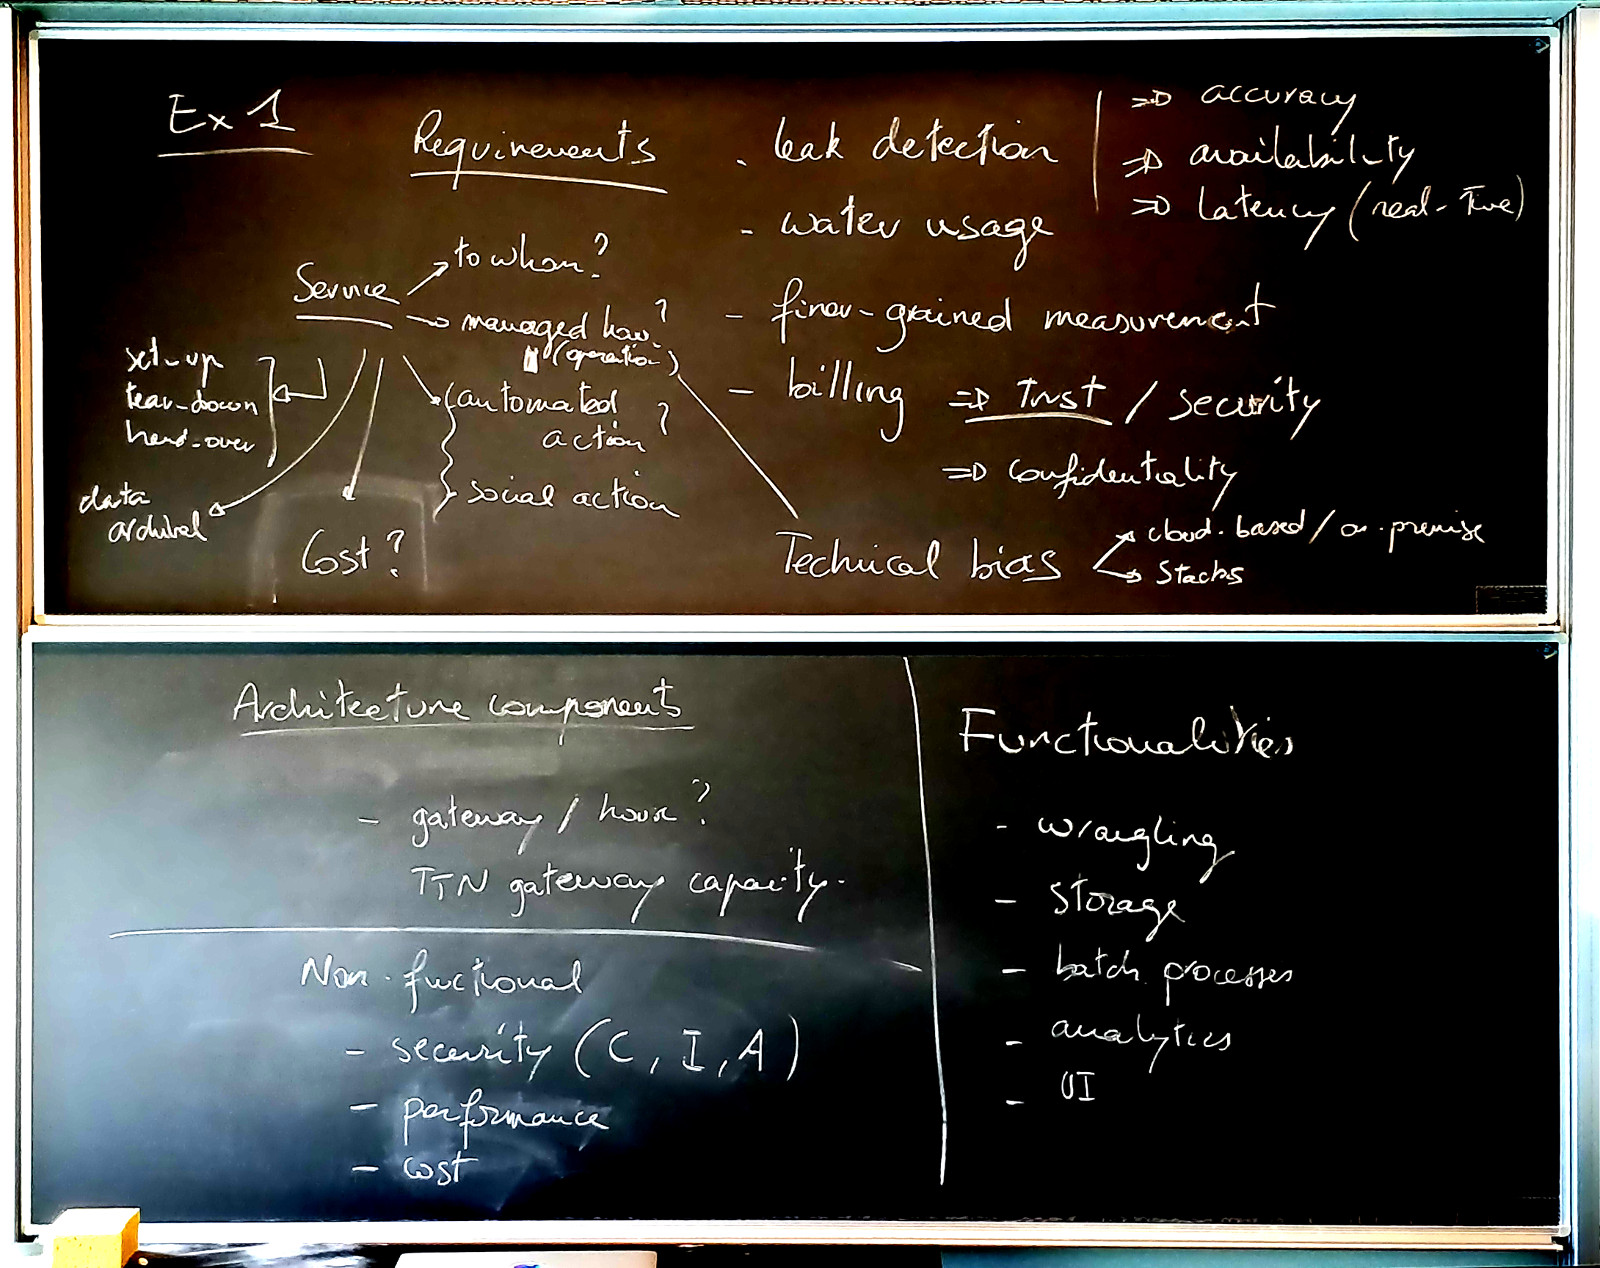 Ex 1
Requirements
. leak detection
⇒ accuracy
⇒ availability
⇒ latency (real-time)
- water usage
- finer-grained measurement
- billing ⇒ Trust / security
⇒ confidentiality
Service
to whom?
managed how?
(operation)
{automated
action ?
social action
set-up
tear-down
hand-over
data
archival
Cost ?
Technical bias
cloud-based / on-premise
stacks
Architecture components
- gateway / hour ?
TTN gateway capacity.
Non-functional
- security (C, I, A)
- performance
- cost
Functionalities
- wrangling
- storage
- batch processes
- analytics
- UI